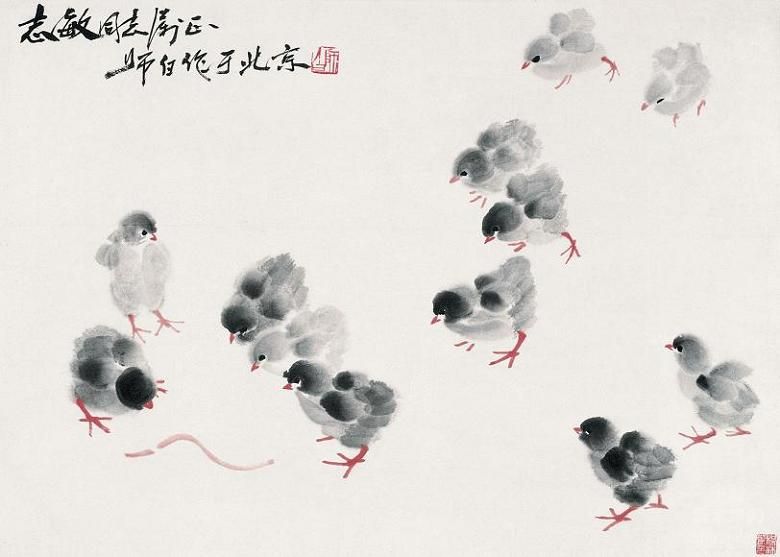 志敏同志正
师白作于北京